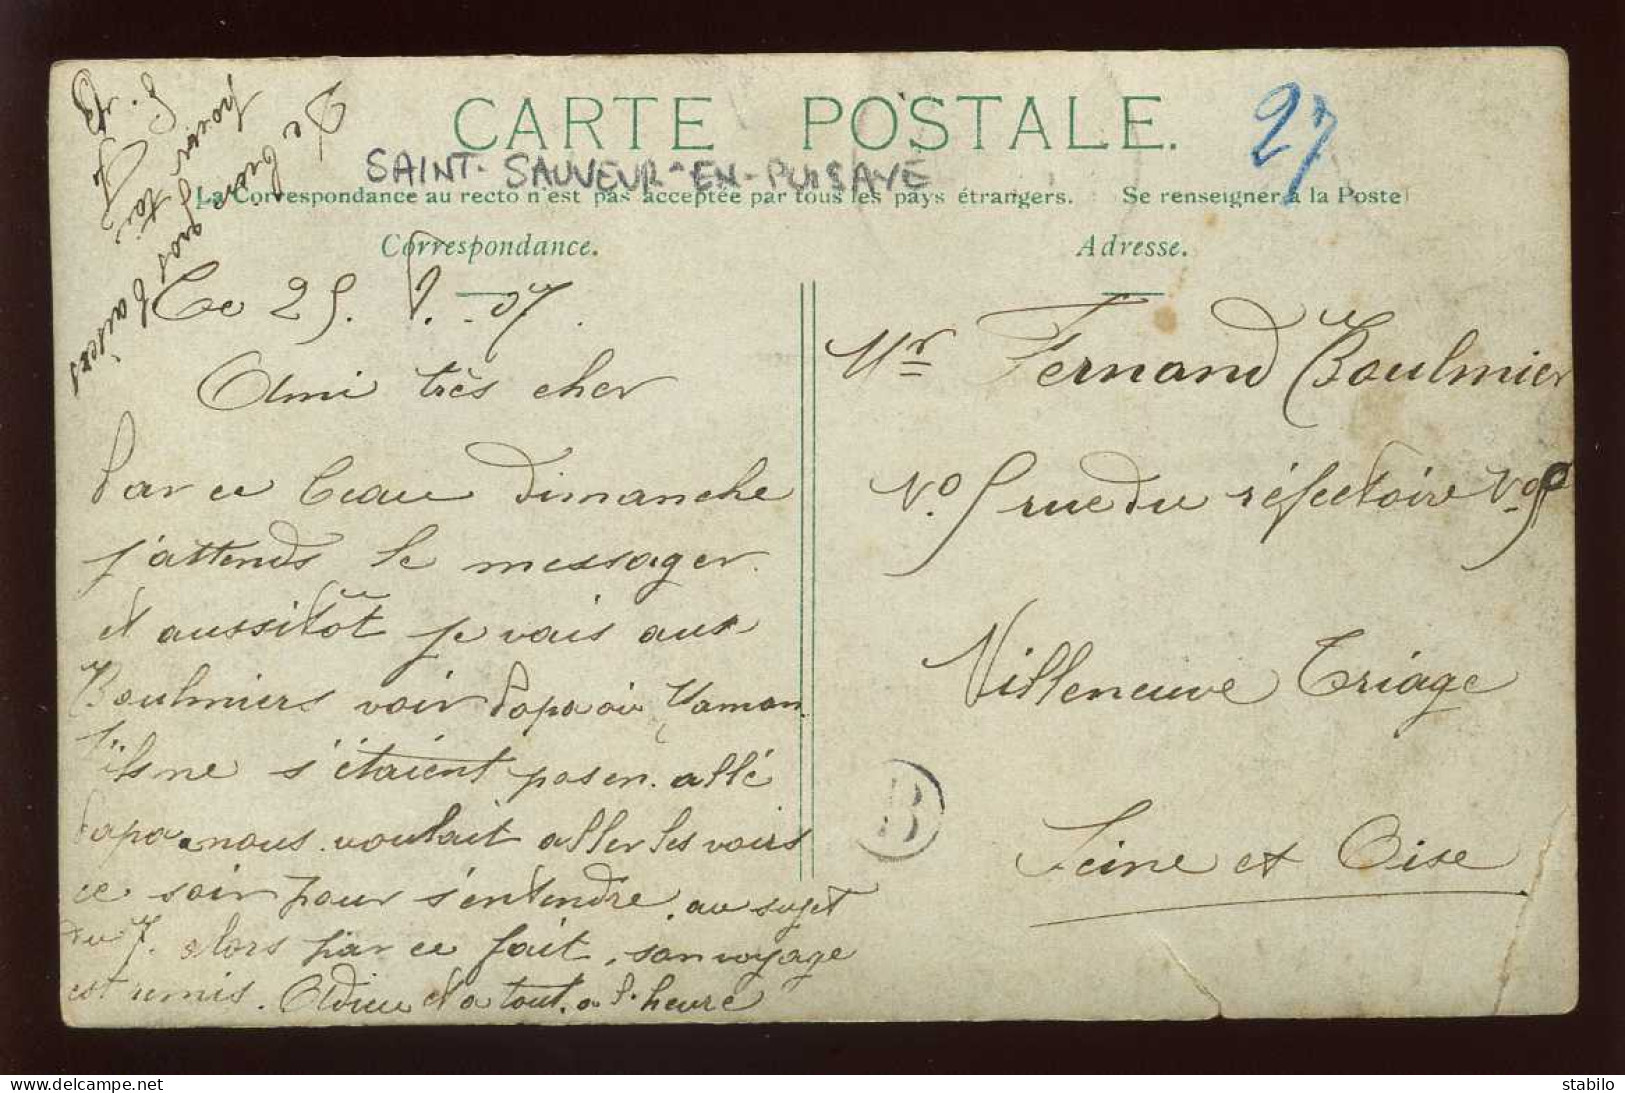 CARTE POSTALE.
27
SAINT-SAUVEUR-EN-PUISAYE
La Correspondance au recto n'est pas acceptée par tous les pays étrangers. Se renseigner à la Poste
Correspondance.
Adresse.
Ce 25. 8. 07.
Ami très cher
Par ce beau dimanche
j'attends le messager.
et aussitôt je vais aux
Boulmiers voir Papa où Maman
s'ils ne s'étaient pas en allé
Papa nous voulait aller les voirs
ce soir pour s'entendre au sujet
du 7. alors par ce fait, son voyage
est remis. Adieu et a tout a l'heure
De bien
gros baisers
pour toi
Mr Fernand Boulmier
No 5 rue du réfectoire No 5
Villeneuve Triage
Seine et Oise
B
stabilo